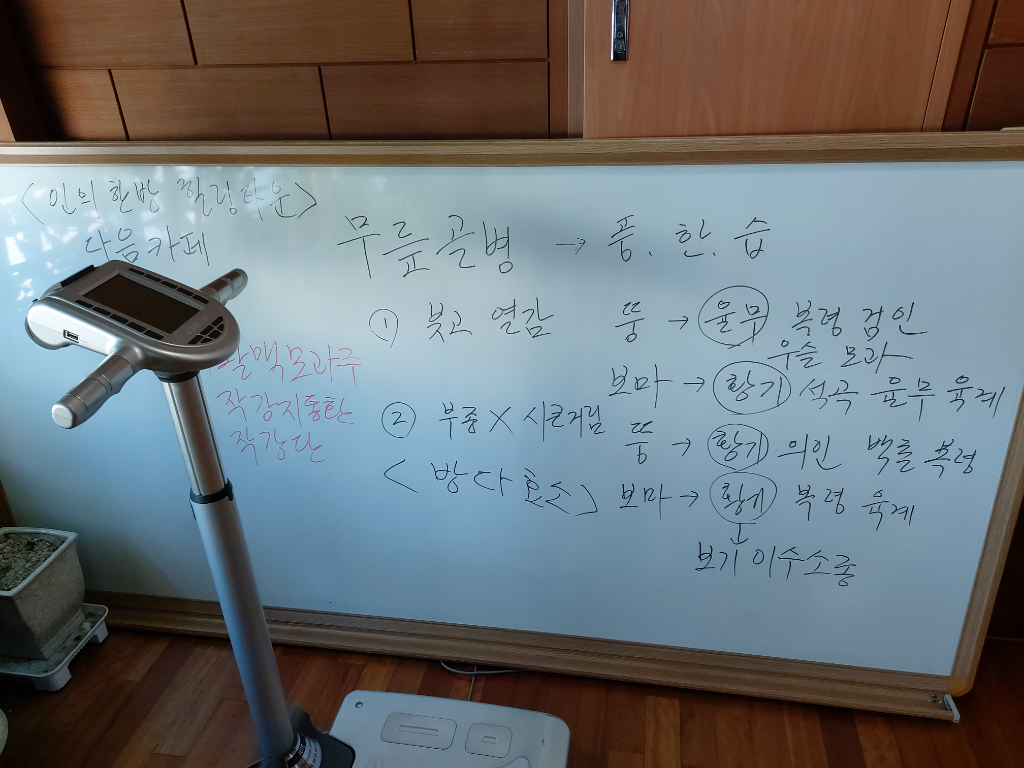 <인의 한방 힐링타운>
다음카페
무릎골병 → 풍. 한. 습
① 붓고 열감
뚱 → 율무 복령 검인
우슬 모과
보마 → 황기 석곡 율무 육계
② 부종 X 시큰거림
뚱 → 황기 의인 백출 복령
< 방다효소 >
보마 → 황기 복령 육계
↓
보기 이수소종
맥모과주
작강지통환
작강단